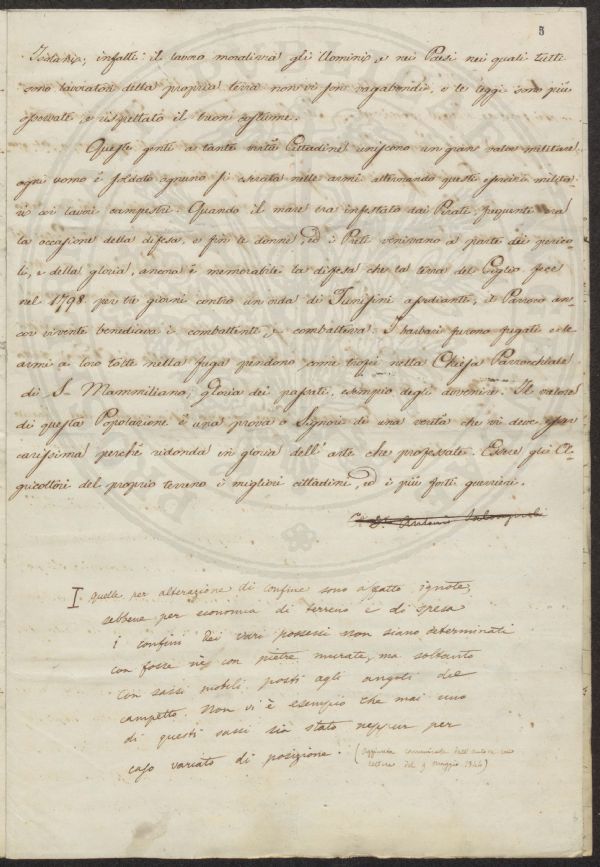 5
Isolani, infatti il lavoro moralizza gli Uomini, e nei Paesi nei quali tutti
sono lavoratori della propria terra non vi son vagabondi, e le leggi sono più
osservate, e rispettato il buon costume.
Queste genti a tante virtù Cittadine uniscono un gran valor militare
ogni uomo è soldato ognuno si esercita nelle armi alternando questi esercizi milita-
ri coi lavori campestri. Quando il mare era infestato dai Pirati frequente era
la occasione della difesa, e fin le donne, ed i Preti venivano a parte dei perico-
li, e della gloria, ancora è memorabile la difesa che la terra del Giglio fece
nel 1798 per tre giorni contro un'orda di Tunisini assedianti, il Parroco an-
cor vivente benediceva i combattenti, e combatteva. I barbari furono fugati e le
armi a loro tolte nella fuga pendono come trofei nella Chiesa Parrocchiale
di S. Mammiliano, gloria dei passati, esempio degli avvenire. Il valore
di questa Popolazione è una prova o Signori di una verità che vi deve esser
carissima perché ridonda in gloria dell'arte che professate. Essere gli A-
gricoltori del proprio terreno i migliori cittadini, ed i più forti guerrieri.
Antonio
I quelle per alterazione di confine sono affatto ignote,
sebbene per economia di terreno e di spesa
i confini dei vari possessi non siano determinati
con fosse nè con pietre murate, ma soltanto
con sassi mobili posti agli angoli del
campetto. Non vi è esempio che mai uno
di questi sassi sia stato neppur per
caso variato di posizione. (aggiunta comunicata dall'autore con
lettera del 9 maggio 1844)